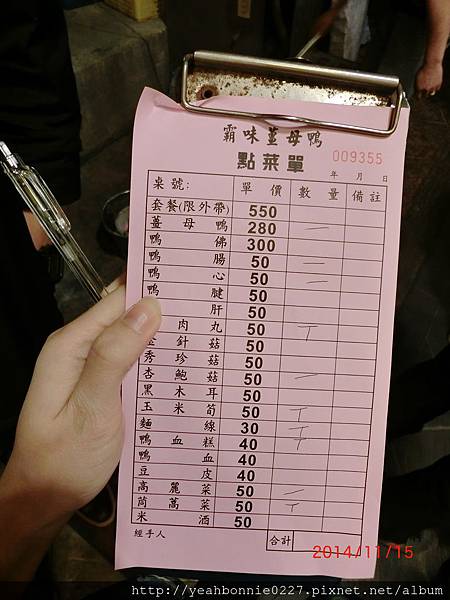 霸味薑母鴨
點菜單
009355
年 月 日
桌號: 單價 數量 備註
套餐(限外帶) 550
薑母鴨 280 一
鴨佛 300
鴨腸 50 一
鴨心 50 一
鴨腱 50
肝 50
肉丸 50 丅
金針菇 50
秀珍菇 50
杏鮑菇 50 一
黑木耳 50
玉米筍 50 丅
麵線 30 丅
鴨血糕 40 丅
鴨血 40
豆皮 40
高麗菜 50 一
茼蒿菜 50 丅
米酒 50
經手人 合計
2014/11/15
http://yeahbonnie0227.pixnet.net/album